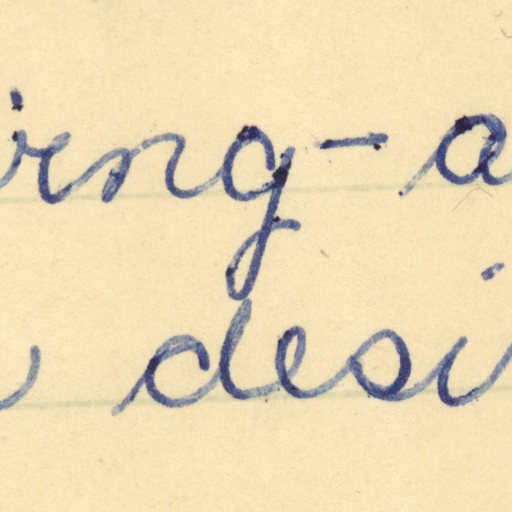 ring - a
desi